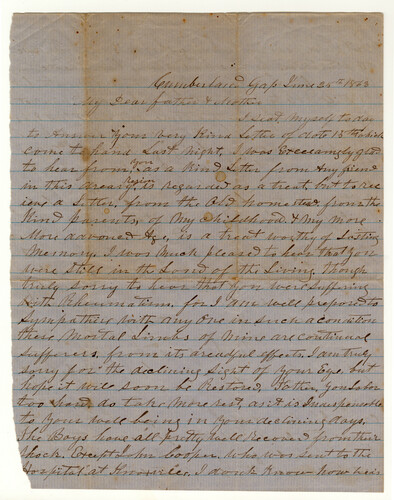 Cumberland Gap June 25th 1863
My Dear father & Mother
I Seat myself to day
to Answer Your very Kind Letter of date 15th which
come to hand Last night, I was Exceamgly glad
to hear from you, as a Kind Letter from Any friend
in this dreary Region is regarded as a treat. but to rec
ieve a Letter, from the Old homestead from the
Kind parents, of My Childhood. & My more
More advanced Age, is a treat worthy of Lasting
Memory. I was Much pleased to hear that You
were Still in the Land of the Living. Though
truly sorry to hear that you were Suffering
With Rheumatism, for I am well prepared to
Sympathise with any One in Such a condition
these Mortal Limbs of Mine are continual
Sufferers, from its dreadful effects. I am truly
Sorry for the declining Sight of Your Eye. but
hope it will soon be Restored, Father, You Labor
too hard do take More rest, as it is Indespensable
to Your well being in Your declining days.
The Boys have all pretty well Recoverd from their
Shock. Except John Cooper. who was sent to the
Hospital at Knoxville, I don't Know how he is